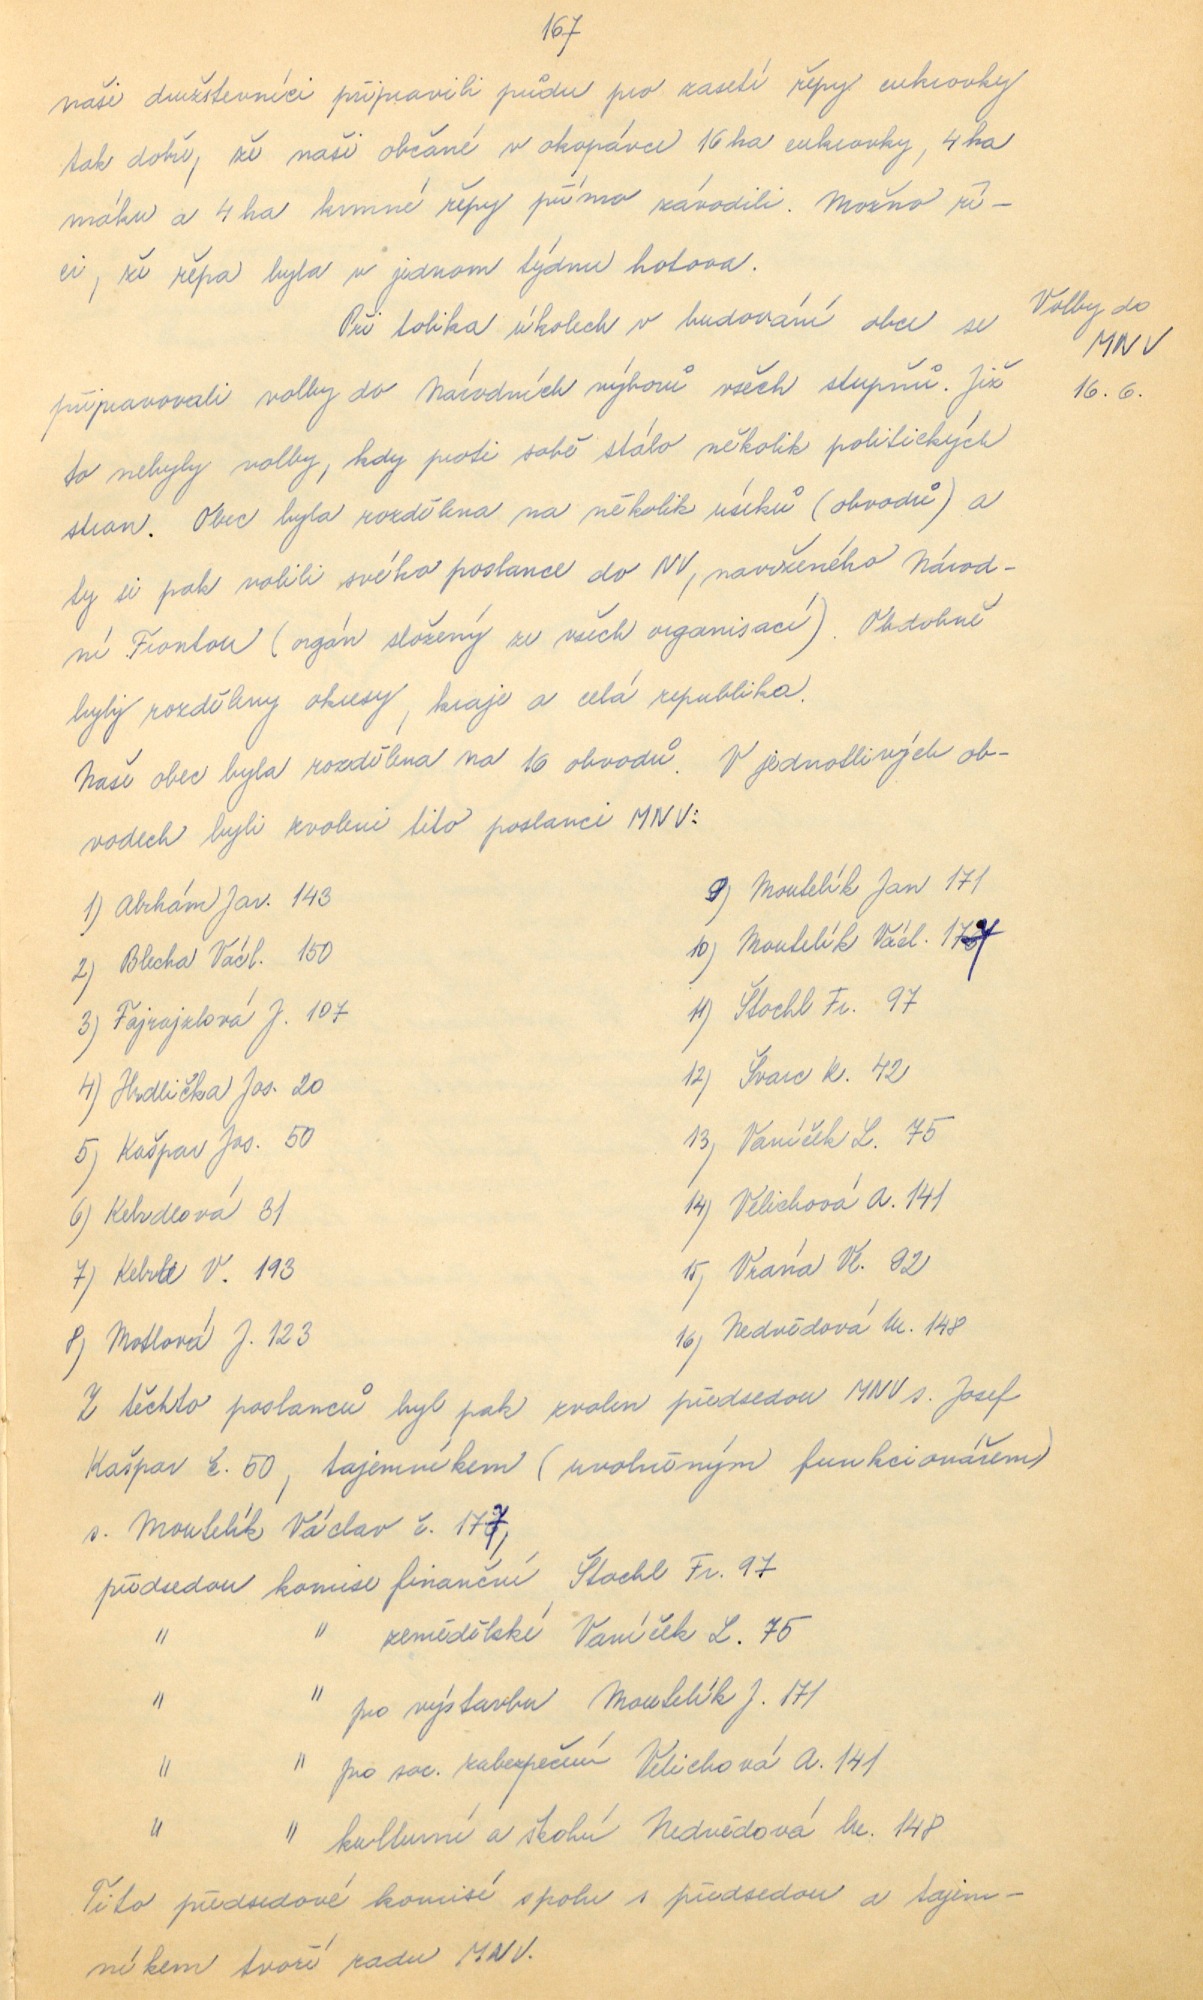 167
naši družstevníci připravili půdu pro zasetí řepy cukrovky
tak dobře, že naši občané v okopávce 16 ha cukrovky, 4 ha
máku a 4 ha krmné řepy přímo závodili. Možno ří-
ci, že řepa byla v jednom týdnu hotova.
Při tolika úkolech v budování obce se
připravovali volby do Národních výborů všech stupňů. Již
to nebyly volby, kdy proti sobě stálo několik politických
stran. Obec byla rozdělena na několik úseků (obvodů) a
ty si pak volili svého poslance do NV, navrženého Národ-
ní Frontou (orgán složený ze všech organisací). Obdobně
byly rozděleny okresy, kraje a celá republika.
Naše obec byla rozdělena na 16 obvodů. V jednotlivých ob-
vodech byli zvoleni tito poslanci MNV:
Volby do
MNV
16. 6.
1) Abrhám Jar. 143
2) Blecha Václ. 150
3) Fajrajzlová J. 107
4) Hrdlička Jos. 20
5) Kašpar Jos. 50
6) Kebrdlová 31
7) Kebrle V. 193
8) Motlová J. 123
9) Moutelík Jan 171
10) Moutelík Václ. 177
11) Štochl Fr. 97
12) Švarc K. 42
13) Vaníček L. 75
14) Velichová A. 141
15) Vrána Vl. 92
16) Nedvědová M. 148
Z těchto poslanců byl pak zvolen předsedou MNV s. Josef
Kašpar č. 50, tajemníkem (uvolněným funkcionářem)
s. Moutelík Václav č. 177,
předsedou komise finanční Štochl Fr. 97
" " zemědělské Vaníček L. 75
" " pro výstavbu Moutelík J. 171
" " pro soc. zabezpečení Velichová A. 141
" " kulturní a školní Nedvědová M. 148
Tito předsedové komisí spolu s předsedou a tajem-
níkem tvoří radu MNV.